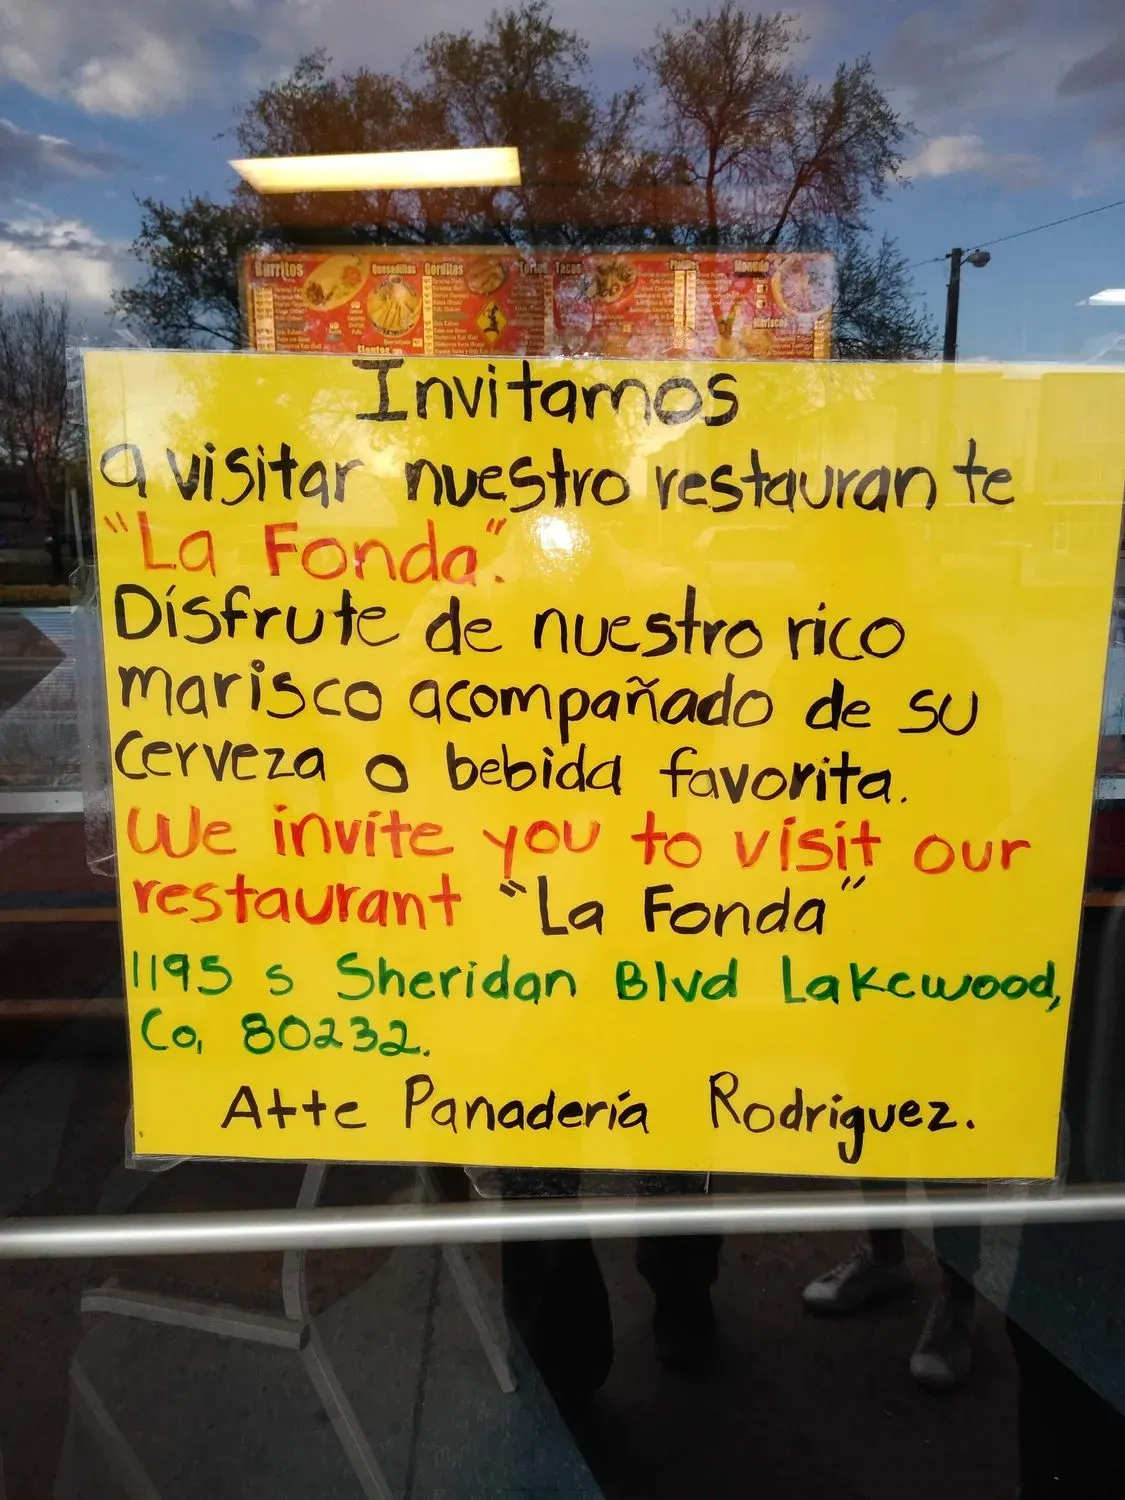 Burritos
Quesadillas
Gorditas
Tortas
Tacos
Platillos
Menudo
Mariscos
Invitamos
a visitar nuestro restaurante
"La Fonda".
Disfrute de nuestro rico
marisco acompañado de su
cerveza o bebida favorita.
We invite you to visit our
restaurant "La Fonda"
1195 s Sheridan Blvd Lakewood,
Co, 80232.
Atte Panadería Rodriguez.